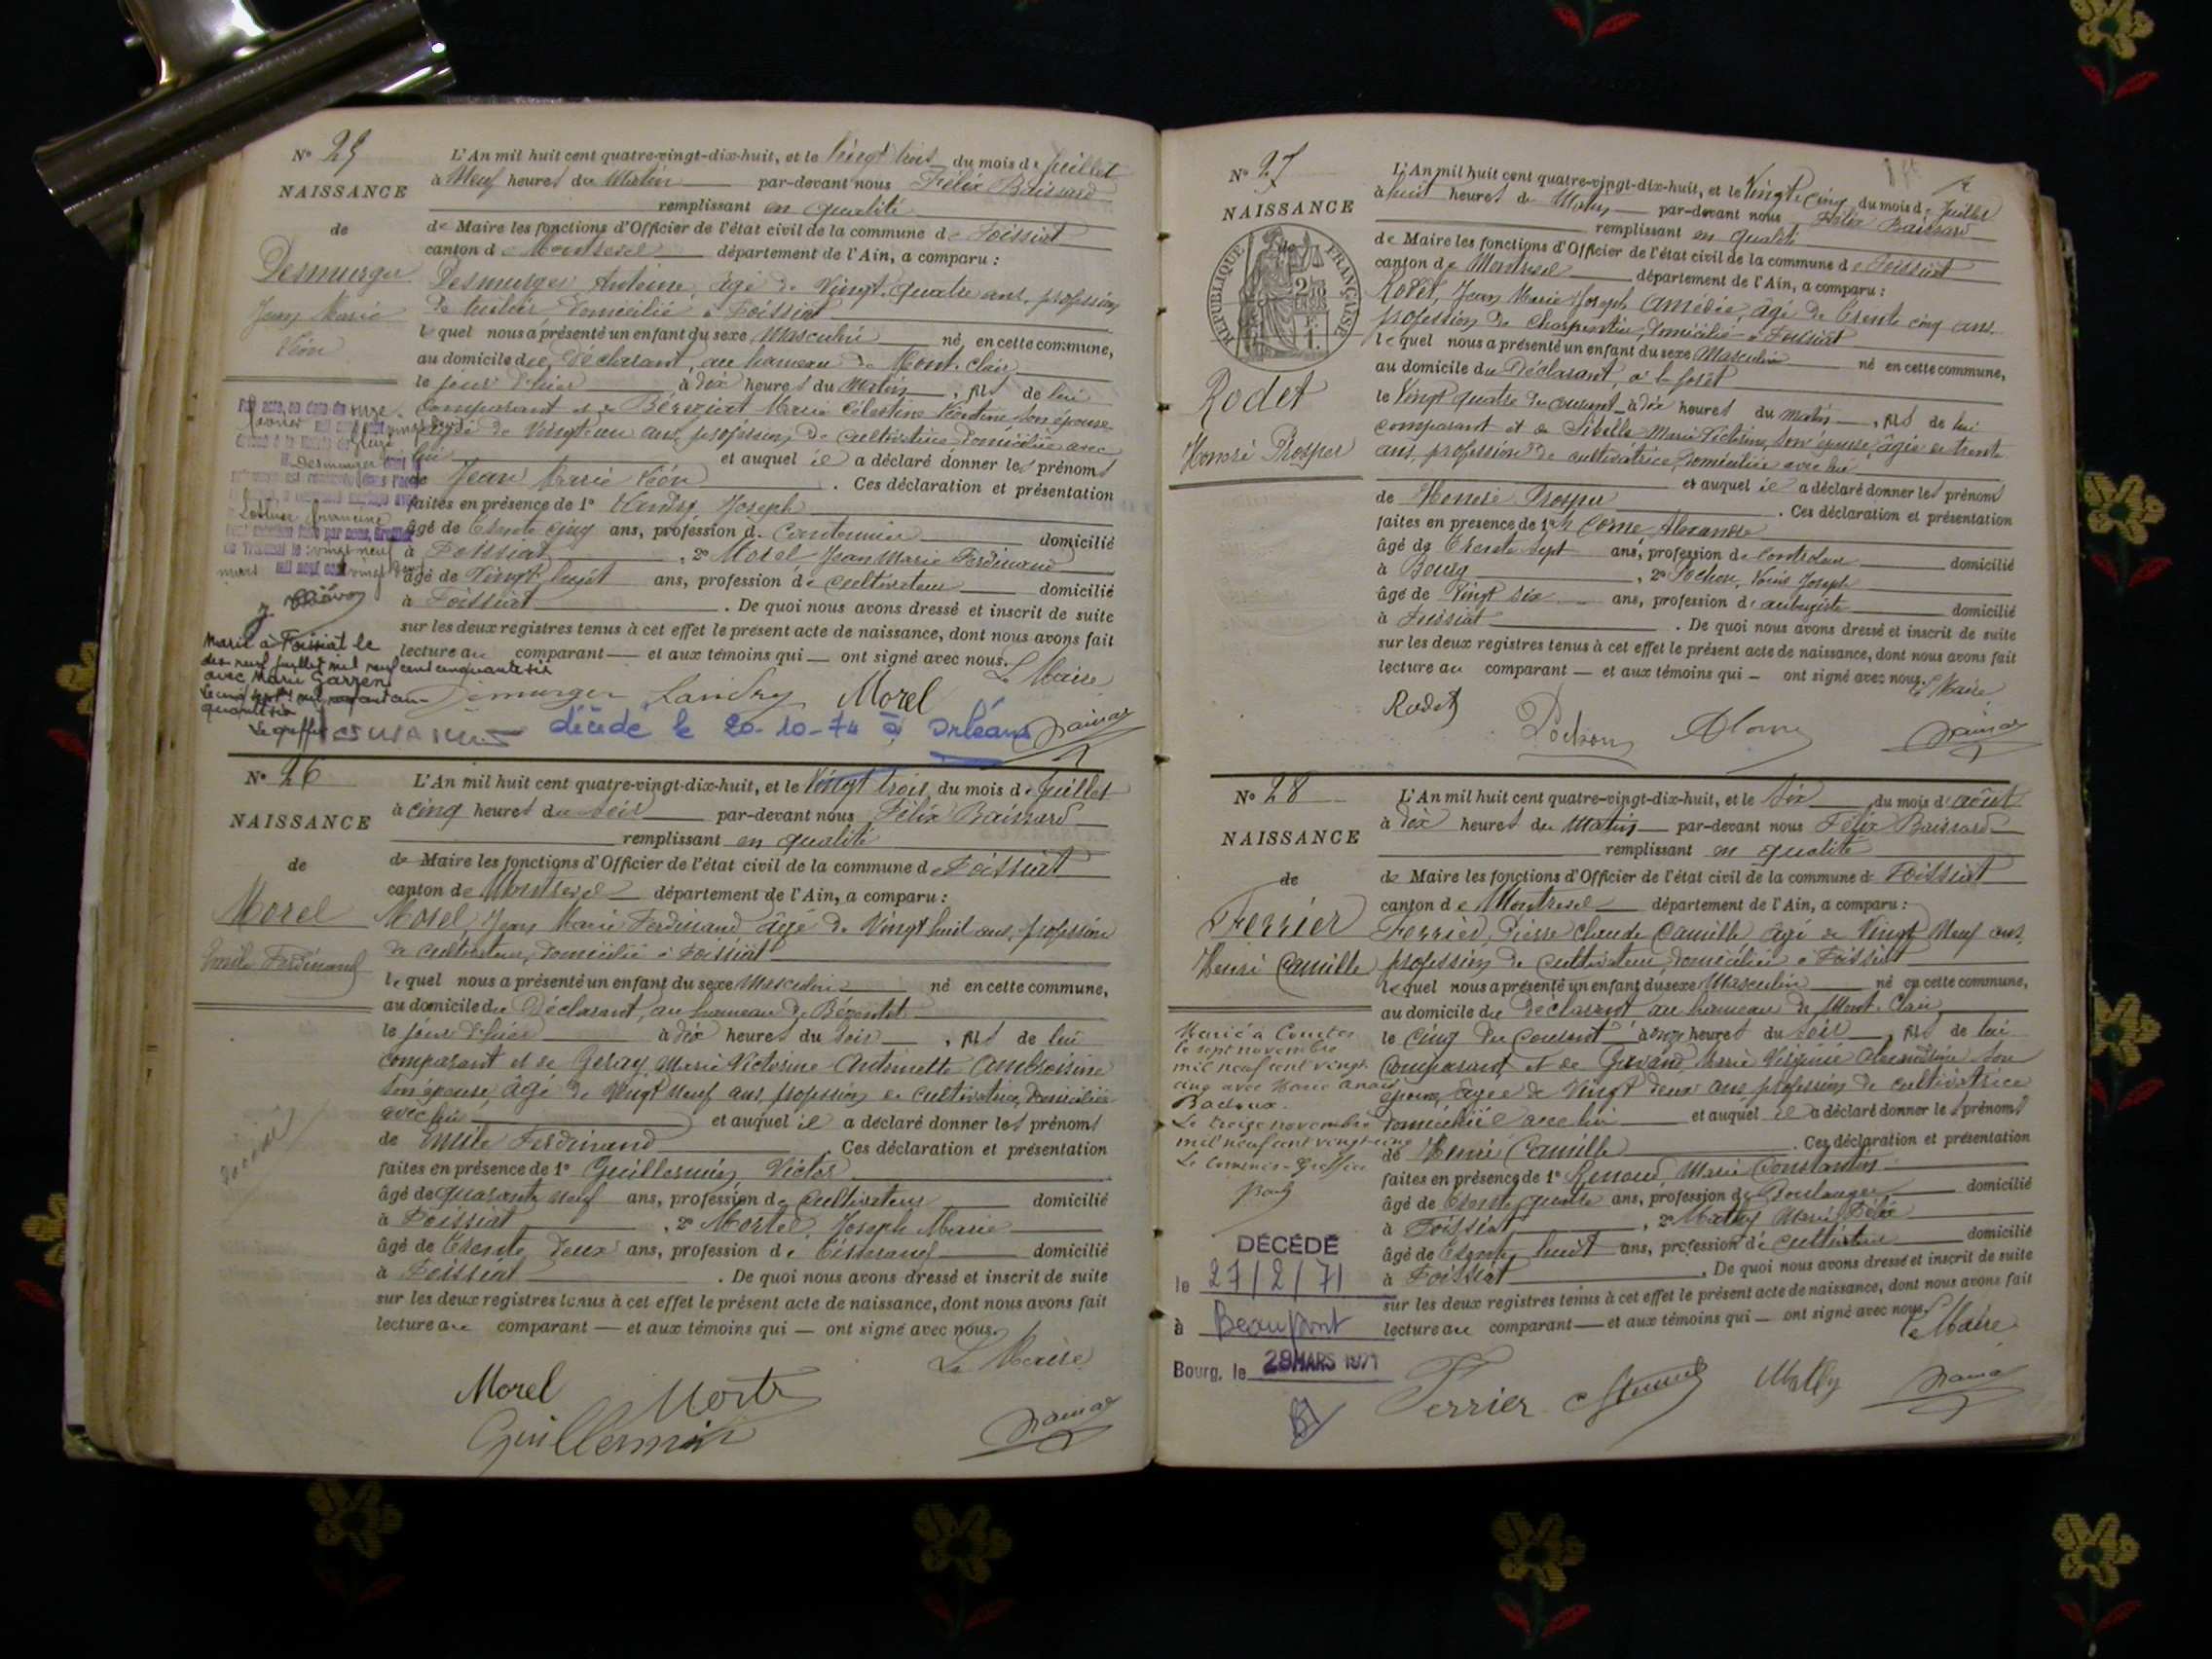 N° 25
NAISSANCE
de
Desmurger
Jean Marie
Léon
L'An mil huit cent quatre-vingt-dix-huit, et le Vingt trois du mois de Juillet
à Neuf heures du Matin par-devant nous Félix Baissard
remplissant en qualité
de Maire les fonctions d'Officier de l'état civil de la commune de Foissiat
canton de Montrevel département de l'Ain, a comparu :
Desmurger Antoine âgé de Vingt-quatre ans, profession
de tuilier, domicilié à Foissiat
lequel nous a présenté un enfant du sexe Masculin né en cette commune,
au domicile du Déclarant, au hameau de Mont-Clair
le jour d'hier à dix heures du Matin, fils de lui
comparant et de Béréziat Marie Célestine Léontine son épouse
âgée de Vingt un ans, profession de cultivatrice domiciliée avec
lui et auquel il a déclaré donner les prénoms
de Jean Marie Léon. Ces déclaration et présentation
faites en présence de 1° Landry, Joseph
âgé de trente cinq ans, profession de Cantonnier domicilié
à Foissiat, 2° Morel, Jean Marie Ferdinand
âgé de Vingt huit ans, profession de cultivateur domicilié
à Foissiat. De quoi nous avons dressé et inscrit de suite
sur les deux registres tenus à cet effet le présent acte de naissance, dont nous avons fait
lecture au comparant et aux témoins qui ont signé avec nous.
Le Maire
Marié à Foissiat le
dix neuf juillet mil neuf cent cinquante six
avec Marie
Demurger Landry Morel
décédé le 20-10-74 à Orléans
N° 26
NAISSANCE
de
Morel
Emile Ferdinand
L'An mil huit cent quatre-vingt-dix-huit, et le Vingt trois du mois de Juillet
à cinq heures du soir par-devant nous Félix Baissard
remplissant en qualité
de Maire les fonctions d'Officier de l'état civil de la commune de Foissiat
canton de Montrevel département de l'Ain, a comparu :
Morel, Jean Marie Ferdinand âgé de Vingt huit ans, profession
de cultivateur, domicilié à Foissiat
lequel nous a présenté un enfant du sexe Masculin né en cette commune,
au domicile du Déclarant, au hameau de
le jour d'hier à dix heures du soir, fils de lui
comparant et de Marie Victorine Antoinette Ambroisine
son épouse, âgé de Vingt neuf ans, profession de cultivatrice, domiciliée
avec lui et auquel il a déclaré donner les prénoms
de Emile Ferdinand Ces déclaration et présentation
faites en présence de 1° Guillermin, Victor
âgé de quarante neuf ans, profession de cultivateur domicilié
à Foissiat, 2° Mortel, Joseph Marie
âgé de trente deux ans, profession de tisserand domicilié
à Foissiat. De quoi nous avons dressé et inscrit de suite
sur les deux registres tenus à cet effet le présent acte de naissance, dont nous avons fait
lecture au comparant — et aux témoins qui — ont signé avec nous.
Le Maire
Morel
Guillermin
N° 27
NAISSANCE
de
RÉPUBLIQUE FRANÇAISE
Rodet
Henri Prosper
L'An mil huit cent quatre-vingt-dix-huit, et le Vingt cinq du mois de Juillet
à huit heures du Matin par-devant nous Félix Baissard
remplissant en qualité
de Maire les fonctions d'Officier de l'état civil de la commune de Foissiat
canton de Montrevel département de l'Ain, a comparu :
Rodet, Jean Marie Joseph Amédée, âgé de trente cinq ans,
profession de Charpentier, domicilié à Foissiat
lequel nous a présenté un enfant du sexe Masculin né en cette commune,
au domicile du Déclarant, à la forêt
le Vingt quatre du courant à dix heures du matin, fils de lui
comparant et de Sibelle Marie Victorine, son épouse, âgée de trente
ans, profession de cultivatrice, domiciliée avec lui
et auquel il a déclaré donner les prénoms
de Henri Prosper. Ces déclaration et présentation
faites en présence de 1° Alexandre
âgé de trente sept ans, profession de controleur domicilié
à Bourg, 2° Pochon, Louis Joseph
âgé de Vingt six ans, profession d'aubergiste domicilié
à Foissiat. De quoi nous avons dressé et inscrit de suite
sur les deux registres tenus à cet effet le présent acte de naissance, dont nous avons fait
lecture au comparant — et aux témoins qui — ont signé avec nous.
Le Maire
Rodet Pochon
N° 28
NAISSANCE
de
Ferrier
Henri Camille
L'An mil huit cent quatre-vingt-dix-huit, et le Six du mois d'août
à dix heures du Matin par-devant nous Félix Baissard
remplissant en qualité
de Maire les fonctions d'Officier de l'état civil de la commune de Foissiat
canton de Montrevel département de l'Ain, a comparu :
Ferrier, Pierre Claude Camille âgé de Vingt Neuf ans,
profession de cultivateur, domicilié à Foissiat
lequel nous a présenté un enfant du sexe Masculin né en cette commune,
au domicile du déclarant au hameau de Mont-Clair
le cinq du courant à onze heures du soir, fils de lui
comparant et de Marie Virginie son
épouse, âgée de Vingt deux ans, profession de cultivatrice
domiciliée avec lui et auquel il a déclaré donner les prénoms
de Henri Camille. Ces déclaration et présentation
faites en présence de 1° Renoud, Marie Constantin
âgé de trente quatre ans, profession de Boulanger domicilié
à Foissiat, 2° Marie Félix
âgé de trente huit ans, profession de cultivateur domicilié
à Foissiat. De quoi nous avons dressé et inscrit de suite
sur les deux registres tenus à cet effet le présent acte de naissance, dont nous avons fait
lecture au comparant — et aux témoins qui — ont signé avec nous.
Le Maire
Marié à Courtes
le sept novembre
mil neuf cent vingt
cinq avec Marie Anaïs
Badoux.
Le treize novembre
mil neuf cent vingt-cinq
Le Commis-Greffier
DÉCÉDÉ
le 27/2/71
à Beaupont
Bourg, le 29 MARS 1971
Ferrier